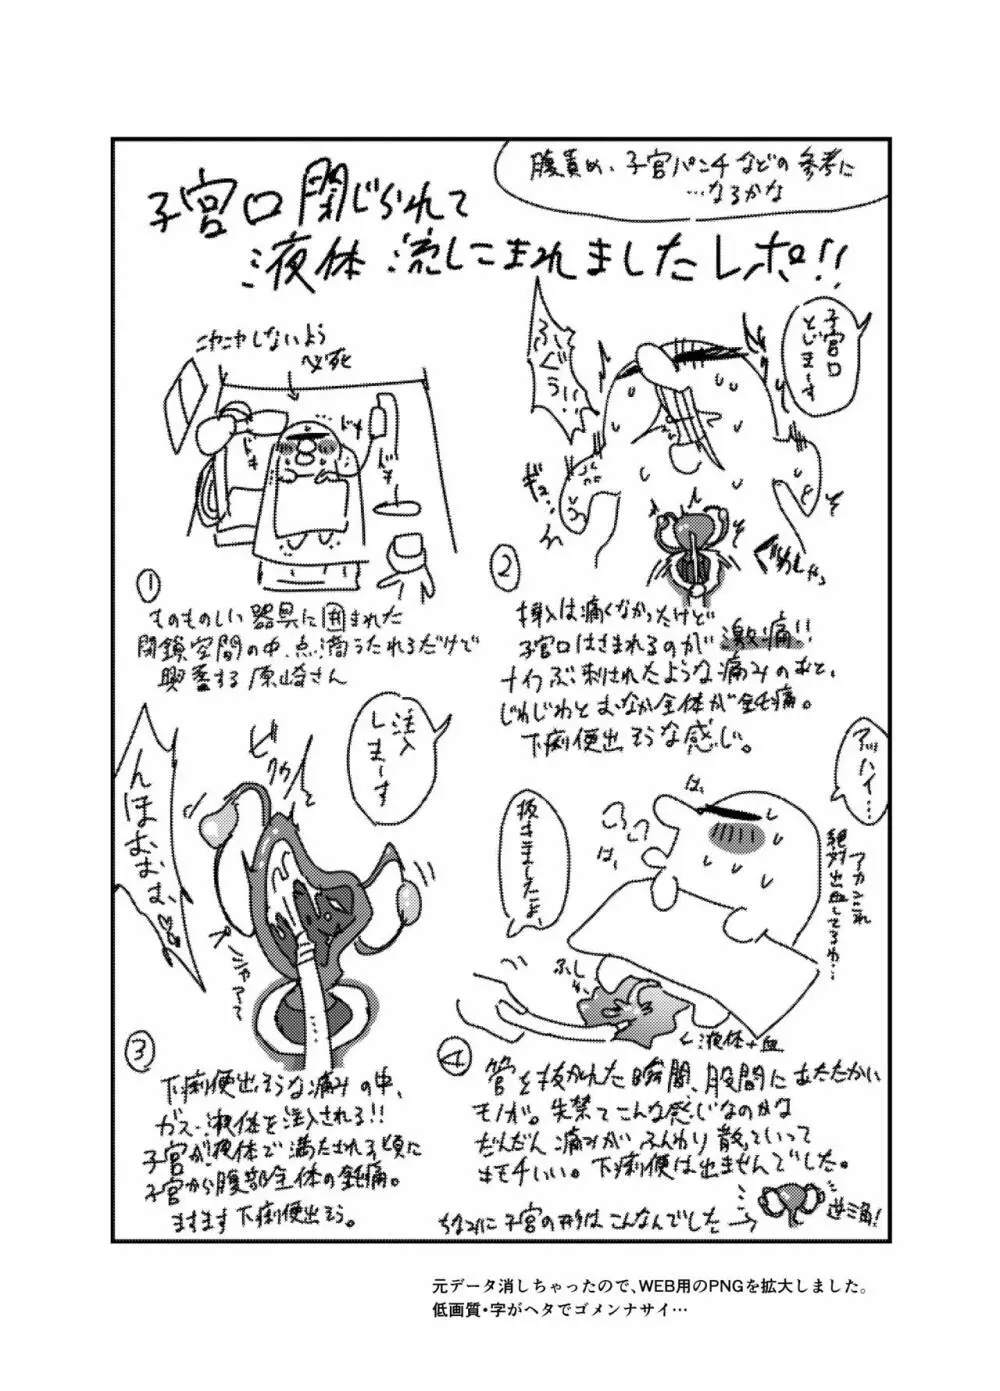 腹責め、子宮パンチなどの参考に
…なるかな
子宮口閉じられて
液体流しこまれましたレポ!!
ニヤニヤしないよう
必死
ドキ
ドキ
ドキ
①
ものものしい器具に囲まれた
閉鎖空間の中、点滴うたれるだけで
興奮する原崎さん
子宮口
とじまーす
ふぐうぅ
②
挿入は痛くなかったけど
子宮口はさまれるのが激痛!!
ナイフぶっ刺されたような痛みのあと、
じわじわとおなか全体が鈍痛。
下痢便出そうな感じ。
注入
しまーす
んほおおお、♡
ビクッ
③
下痢便出そうな痛みの中、
ガス・液体を注入される!!
子宮が液体で満たされる頃に
子宮から腹部全体の鈍痛。
ますます下痢便出そう。
アッハイ…
アカンこれ
絶対出血してるわ…
抜きましたよ、
は、
は、
←液体+血
④
管を抜かれた瞬間、股間にあたたかい
モノが。失禁てこんな感じなのかな
だんだん痛みがふんわり散っていって
キモチいい。下痢便は出ませんでした。
ちなみに子宮の形はこんなんでした→
逆三角!
元データ消しちゃったので、WEB用のPNGを拡大しました。
低画質・字がヘタでゴメンナサイ…